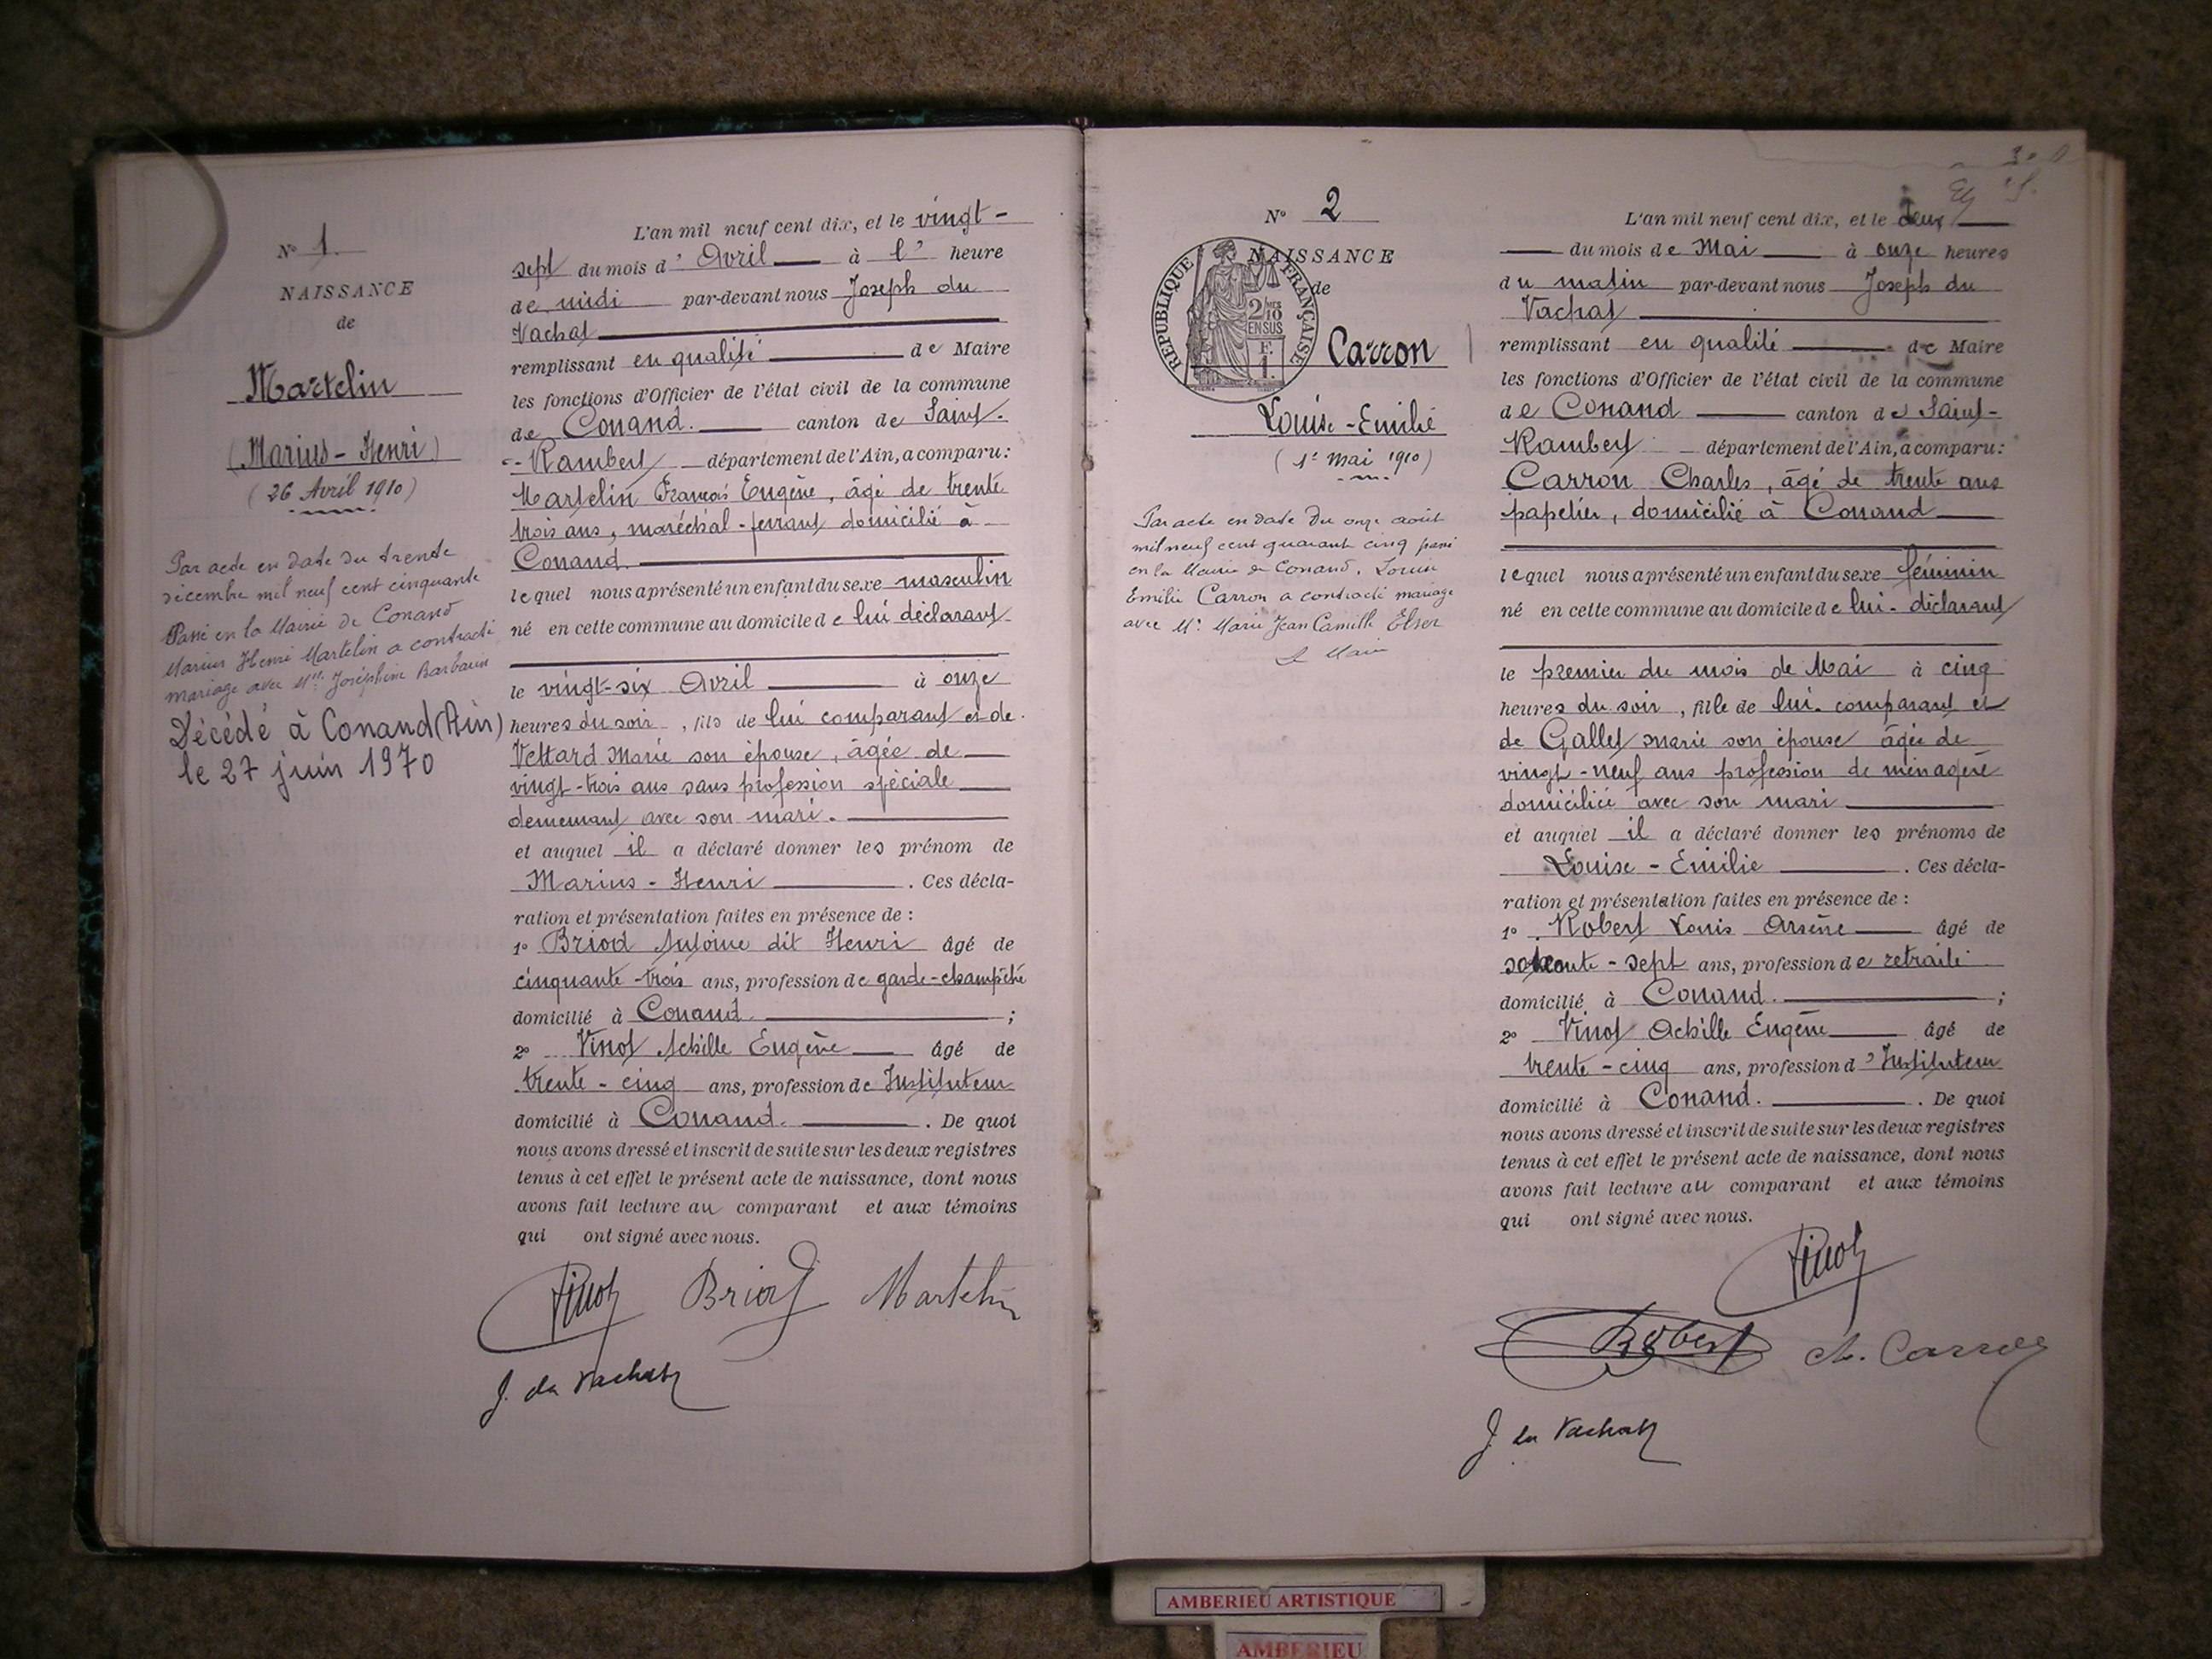 N° 1.
NAISSANCE
de
Martelin
(Marius - Henri)
(26 Avril 1910)
Par acte en date du trente
décembre mil neuf cent cinquante
Passé en la Mairie de Conand
Marius Henri Martelin a contracté
mariage avec Mlle Joséphine Barbarin
Décédé à Conand (Ain)
le 27 juin 1970
L'an mil neuf cent dix, et le vingt-
sept du mois d' Avril à l' heure
de midi par-devant nous Joseph du
Vachat
remplissant en qualité de Maire
les fonctions d'Officier de l'état civil de la commune
de Conand. canton de Saint-
- Rambert département de l'Ain, a comparu:
Martelin François Eugène, âgé de trente
trois ans, maréchal-ferrant domicilié à
Conand.
lequel nous a présenté un enfant du sexe masculin
né en cette commune au domicile de lui déclarant
le vingt-six Avril à onze
heures du soir, fils de lui comparant et de
Vettard Marie son épouse, âgée de
vingt-trois ans sans profession spéciale
demeurant avec son mari.
et auquel il a déclaré donner les prénom de
Marius - Henri . Ces décla-
ration et présentation faites en présence de :
1° Briod Antoine dit Henri âgé de
cinquante-trois ans, profession de garde-champêtre
domicilié à Conand. ;
2° Vinot Achille Eugène âgé de
trente-cinq ans, profession de Instituteur
domicilié à Conand. . De quoi
nous avons dressé et inscrit de suite sur les deux registres
tenus à cet effet le présent acte de naissance, dont nous
avons fait lecture au comparant et aux témoins
qui ont signé avec nous.
Vinot Briod Martelin
J. du Vachat
N° 2
NAISSANCE
de
RÉPUBLIQUE FRANÇAISE
2/10 EN SUS
F. 1.
Carron
Louise - Emilie
(1er Mai 1910)
Par acte en date du onze août
mil neuf cent quarant cinq passé
en la Mairie de Conand, Louise
Emilie Carron a contracté mariage
avec Mr Marie Jean Camille
Le Maire
L'an mil neuf cent dix, et le deux
du mois de Mai à onze heures
du matin par-devant nous Joseph du
Vachat
remplissant en qualité de Maire
les fonctions d'Officier de l'état civil de la commune
de Conand canton de Saint-
Rambert département de l'Ain, a comparu:
Carron Charles, âgé de trente ans
papetier, domicilié à Conand
lequel nous a présenté un enfant du sexe féminin
né en cette commune au domicile de lui-déclarant
le premier du mois de Mai à cinq
heures du soir, fille de lui-comparant et
de Gallet Marie son épouse âgée de
vingt-neuf ans profession de ménagère
domiciliée avec son mari
et auquel il a déclaré donner les prénoms de
Louise - Emilie . Ces décla-
ration et présentation faites en présence de :
1° Robert Louis Arsène âgé de
soixante-sept ans, profession de retraité
domicilié à Conand. ;
2° Vinot Achille Eugène âgé de
trente-cinq ans, profession d'Instituteur
domicilié à Conand. . De quoi
nous avons dressé et inscrit de suite sur les deux registres
tenus à cet effet le présent acte de naissance, dont nous
avons fait lecture au comparant et aux témoins
qui ont signé avec nous.
Vinot
Robert Ch. Carron
J du Vachat
AMBERIEU ARTISTIQUE
AMBERIEU